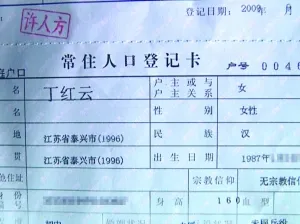 登记日期：2009 年 月
许人方
常住人口登记卡
户口 户号 0046
名 丁红云 户主或与户主关系 女
性别 女性
地 江苏省泰兴市(1996) 民族 汉
贯 江苏省泰兴市(1996) 出生日期 1987年
住址 宗教信仰 无宗教信
身高 160